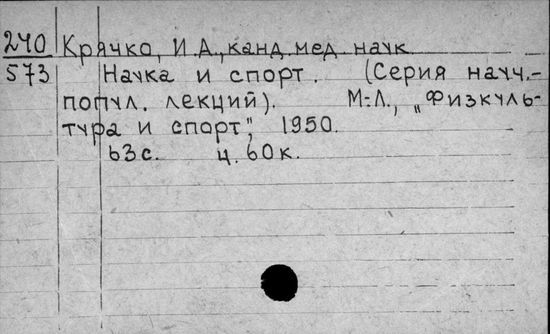 240 Крячко, И.А., канд. мед. наук
573 Наука и спорт. (Серия науч.-
попул. лекций). М.-Л., „Физкуль-
тура и спорт", 1950.
63с. ц. 60к.